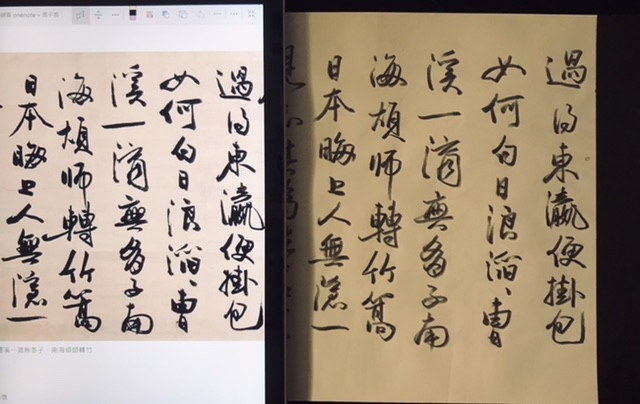 onenote
過得東瀛便掛包
如何白日浪滔〻曹
溪一滴無多子南
海煩師轉竹篙
日本晦上人無隱一
溪一滴無多子 南海煩師轉竹
過得東瀛便掛包
如何白日浪滔〻曹
溪一滴無多子南
海煩師轉竹篙
日本晦上人無隱一